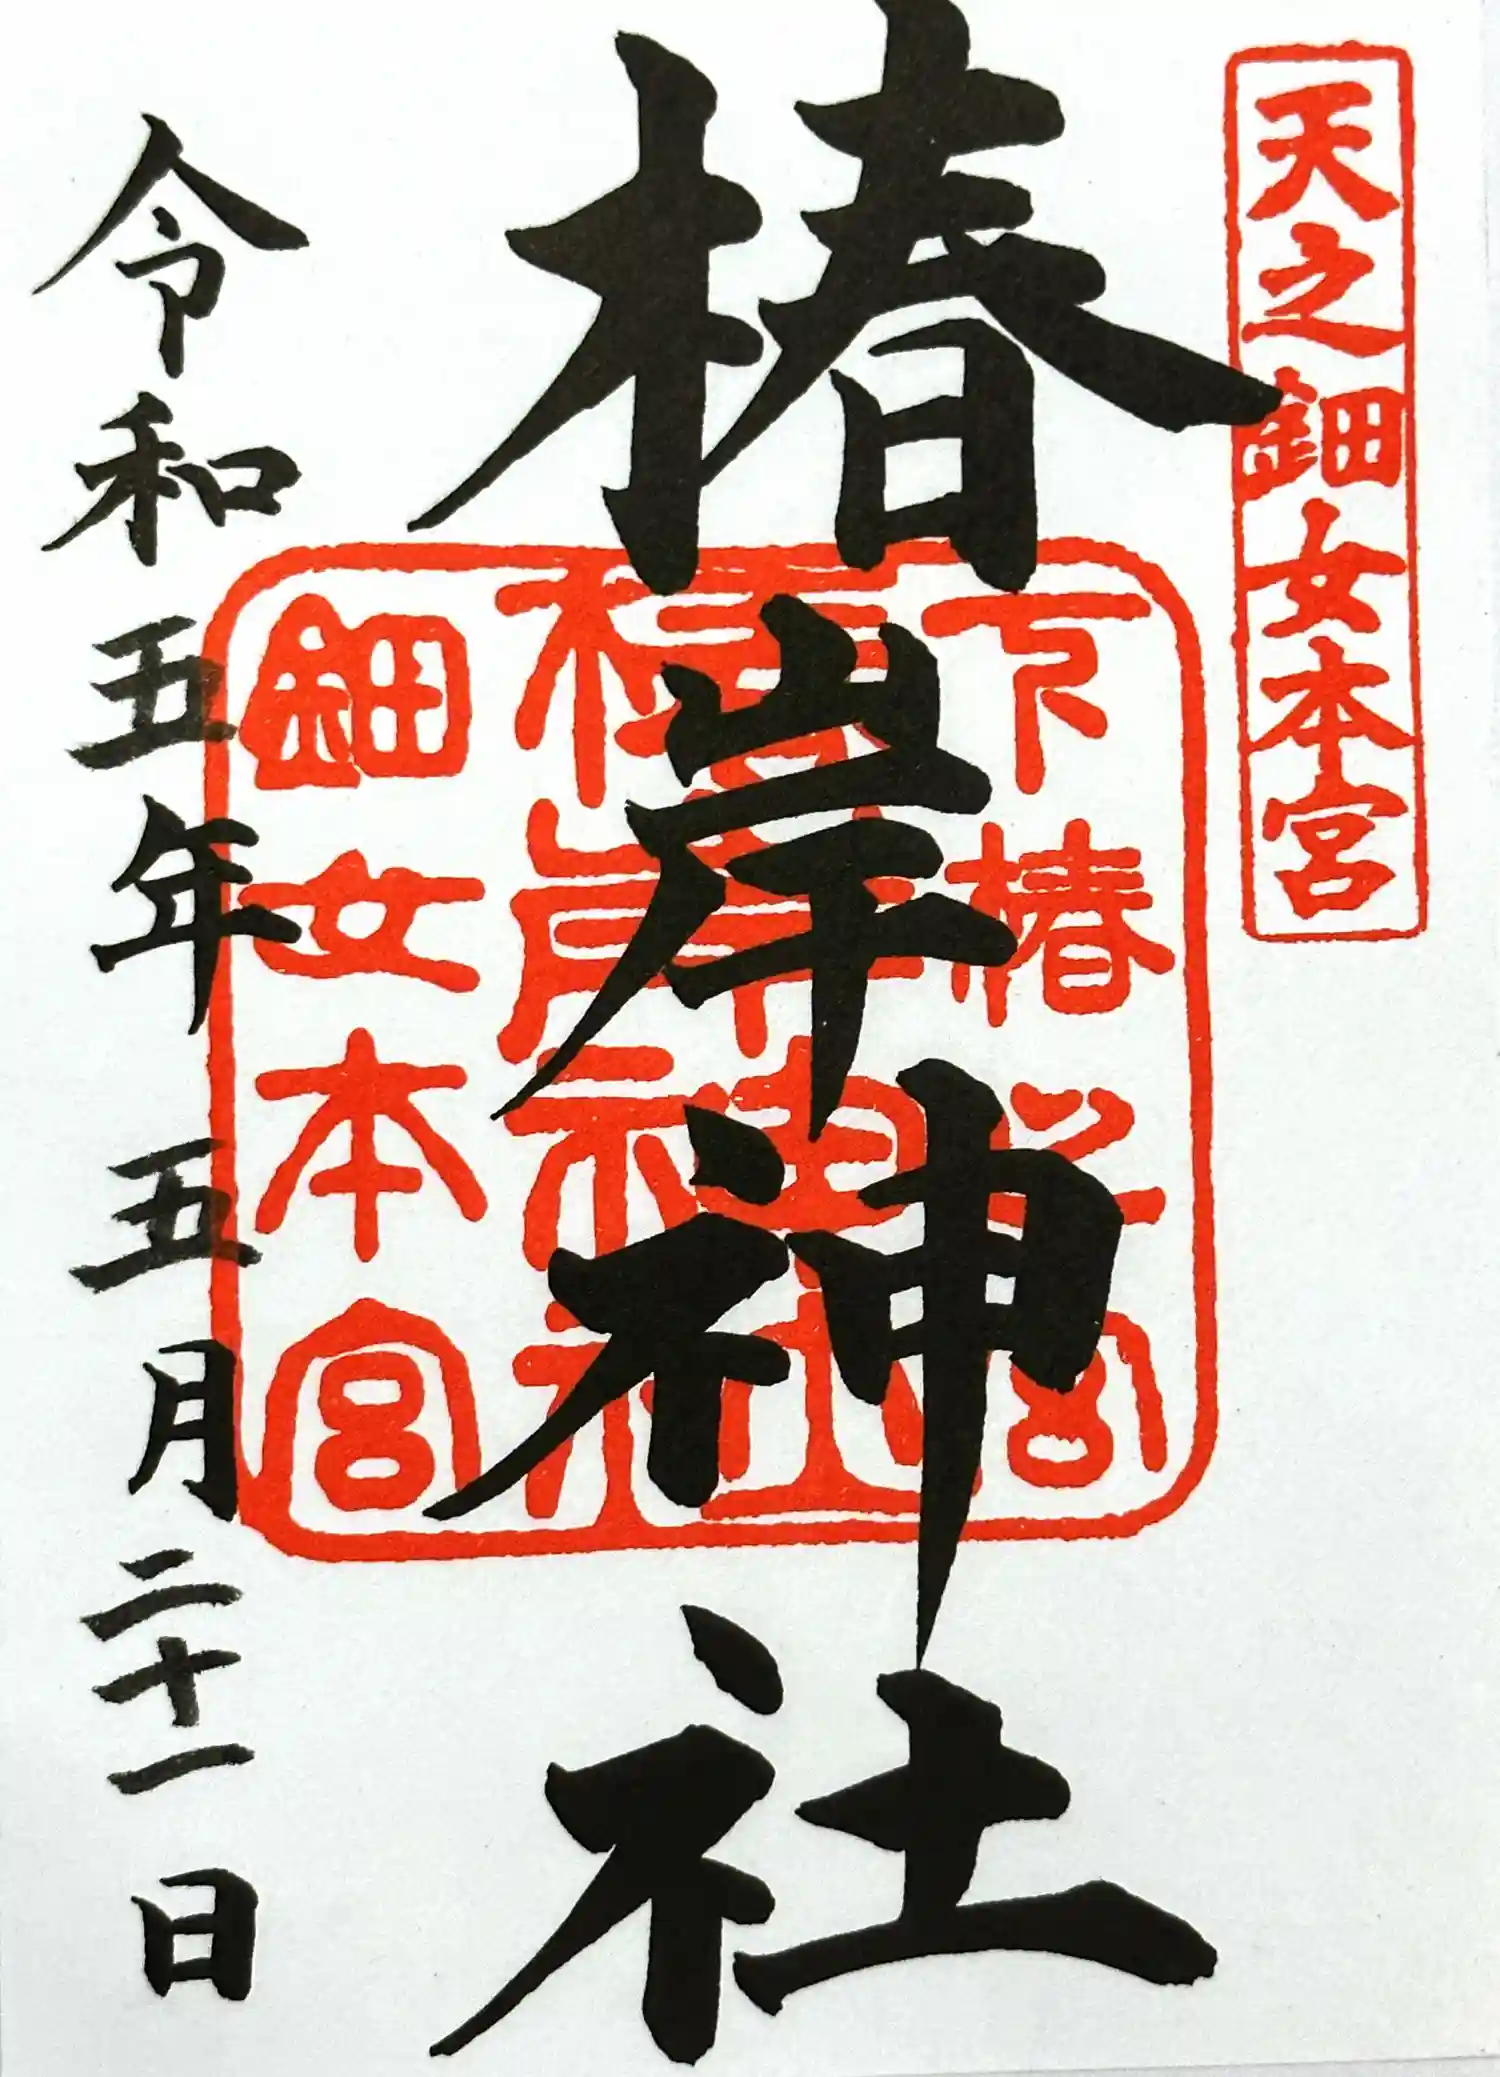 天之鈿女本宮
椿岸神社
下椿
椿岸神社
鈿女本宮
令和五年五月二十一日